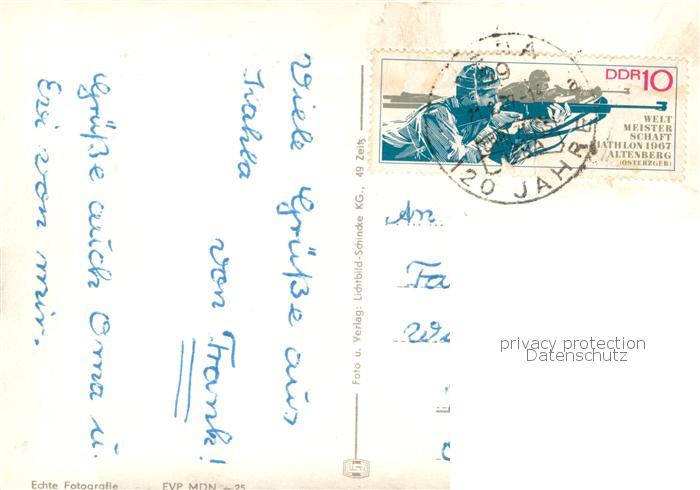 Viele Grüße aus
Kahla
von Frank!
Grüße auch Oma u.
Evi von mir.
Foto u. Verlag: Lichtbild-Schincke KG., 49 Zeitz
Echte Fotografie
EVP MDN -25
DDR 10
WELT
MEISTER
SCHAFT
BIATHLON 1967
ALTENBERG
(OSTERZGEB)
120 JAHRE
An
Fa
privacy protection
Datenschutz